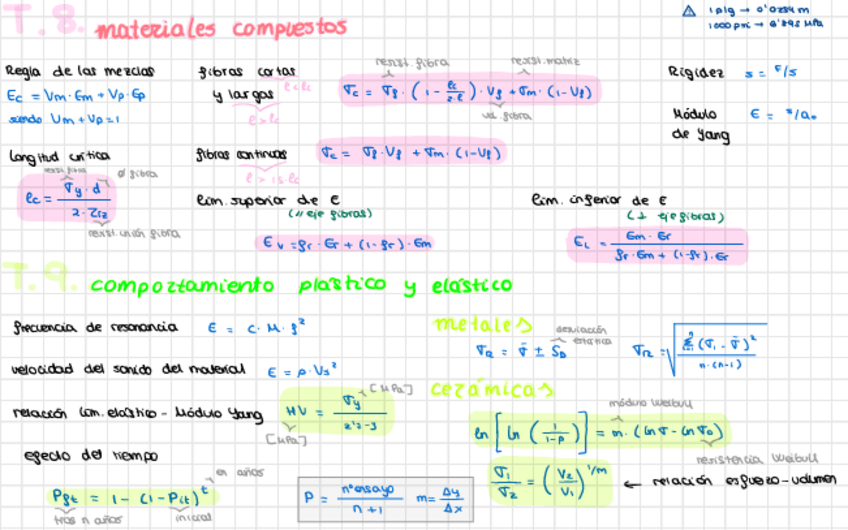 T.8. materiales compuestos
⚠ 1 plg → 0'0254 m
1000 psi → 6'895 MPa
Regla de las mezclas
Ec = Vm·Em + Vp·Ep
siendo Vm + Vp = 1
fibras cortas l<lc
y largas
l>lc
resist. fibra
resist. matriz
σc = σf · (1 - lc/2·l) · Vf + σm · (1-Vf)
vol. fibra
Rigidez s = F/δ
Módulo E = s/a₀
de Yang
longitud crítica
resist. fibra
ø fibra
lc = σy·d / 2·τ12
resist. unión fibra
fibras continuas σc = σf·Vf + σm·(1-Vf)
l > 15 lc
lim. superior de E
(// eje fibras)
E∥ = fr·Er + (1-fr)·Em
lim. inferior de E
(⊥ eje fibras)
E⊥ = Em·Er / fr·Em + (1-fr)·Er
T.9. comportamiento plástico y elástico
frecuencia de resonancia E = C·M·f²
velocidad del sonido del material E = ρ·Vs²
relación lim. elástico - Módulo Yang HV = σy / 2'2-3
[MPa]
[MPa]
efecto del tiempo
en años
Pft = 1 - (1-Pit)^t
tras n años
inicial
P = nº ensayo / n+1 m = Δy / Δx
metales
desviación
σR = σ̄ ± SD
σR = √(Σ(σi - σ̄)² / n·(n-1))
cerámicas
módulo Weibull
ln [ln (1/1-P)] = m·(ln σ - ln σ₀)
resistencia Weibull
σ1/σ2 = (V2/V1)^1/m ← relación esfuerzo-volumen